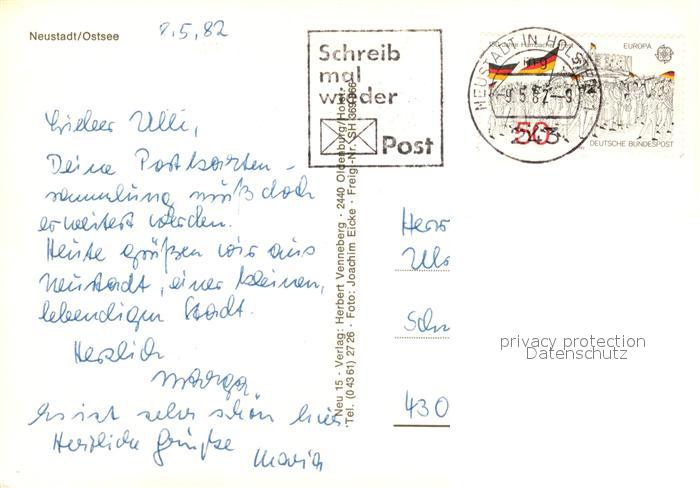 Neustadt/Ostsee
8.5.82
Schreib
mal
wieder
Post
NEUSTADT IN HOLST
-9.5.82-9
EUROPA
50
DEUTSCHE BUNDESPOST
Lieber Ulli,
Deine Postkarten-
sammlung muß doch
erweitert werden.
Heute grüßen wir aus
Neustadt, einer kleinen,
lebendigen Stadt.
Herzlich
Marga
Es ist sehr schön hier
Herzliche Grüße
Maria
Neu 15 · Verlag: Herbert Venneberg · 2440 Oldenburg/Holst.
Tel. (04361) 2726 · Foto: Joachim Eicke · Freig.-Nr. SH
Herr
Schr
430
privacy protection
Datenschutz